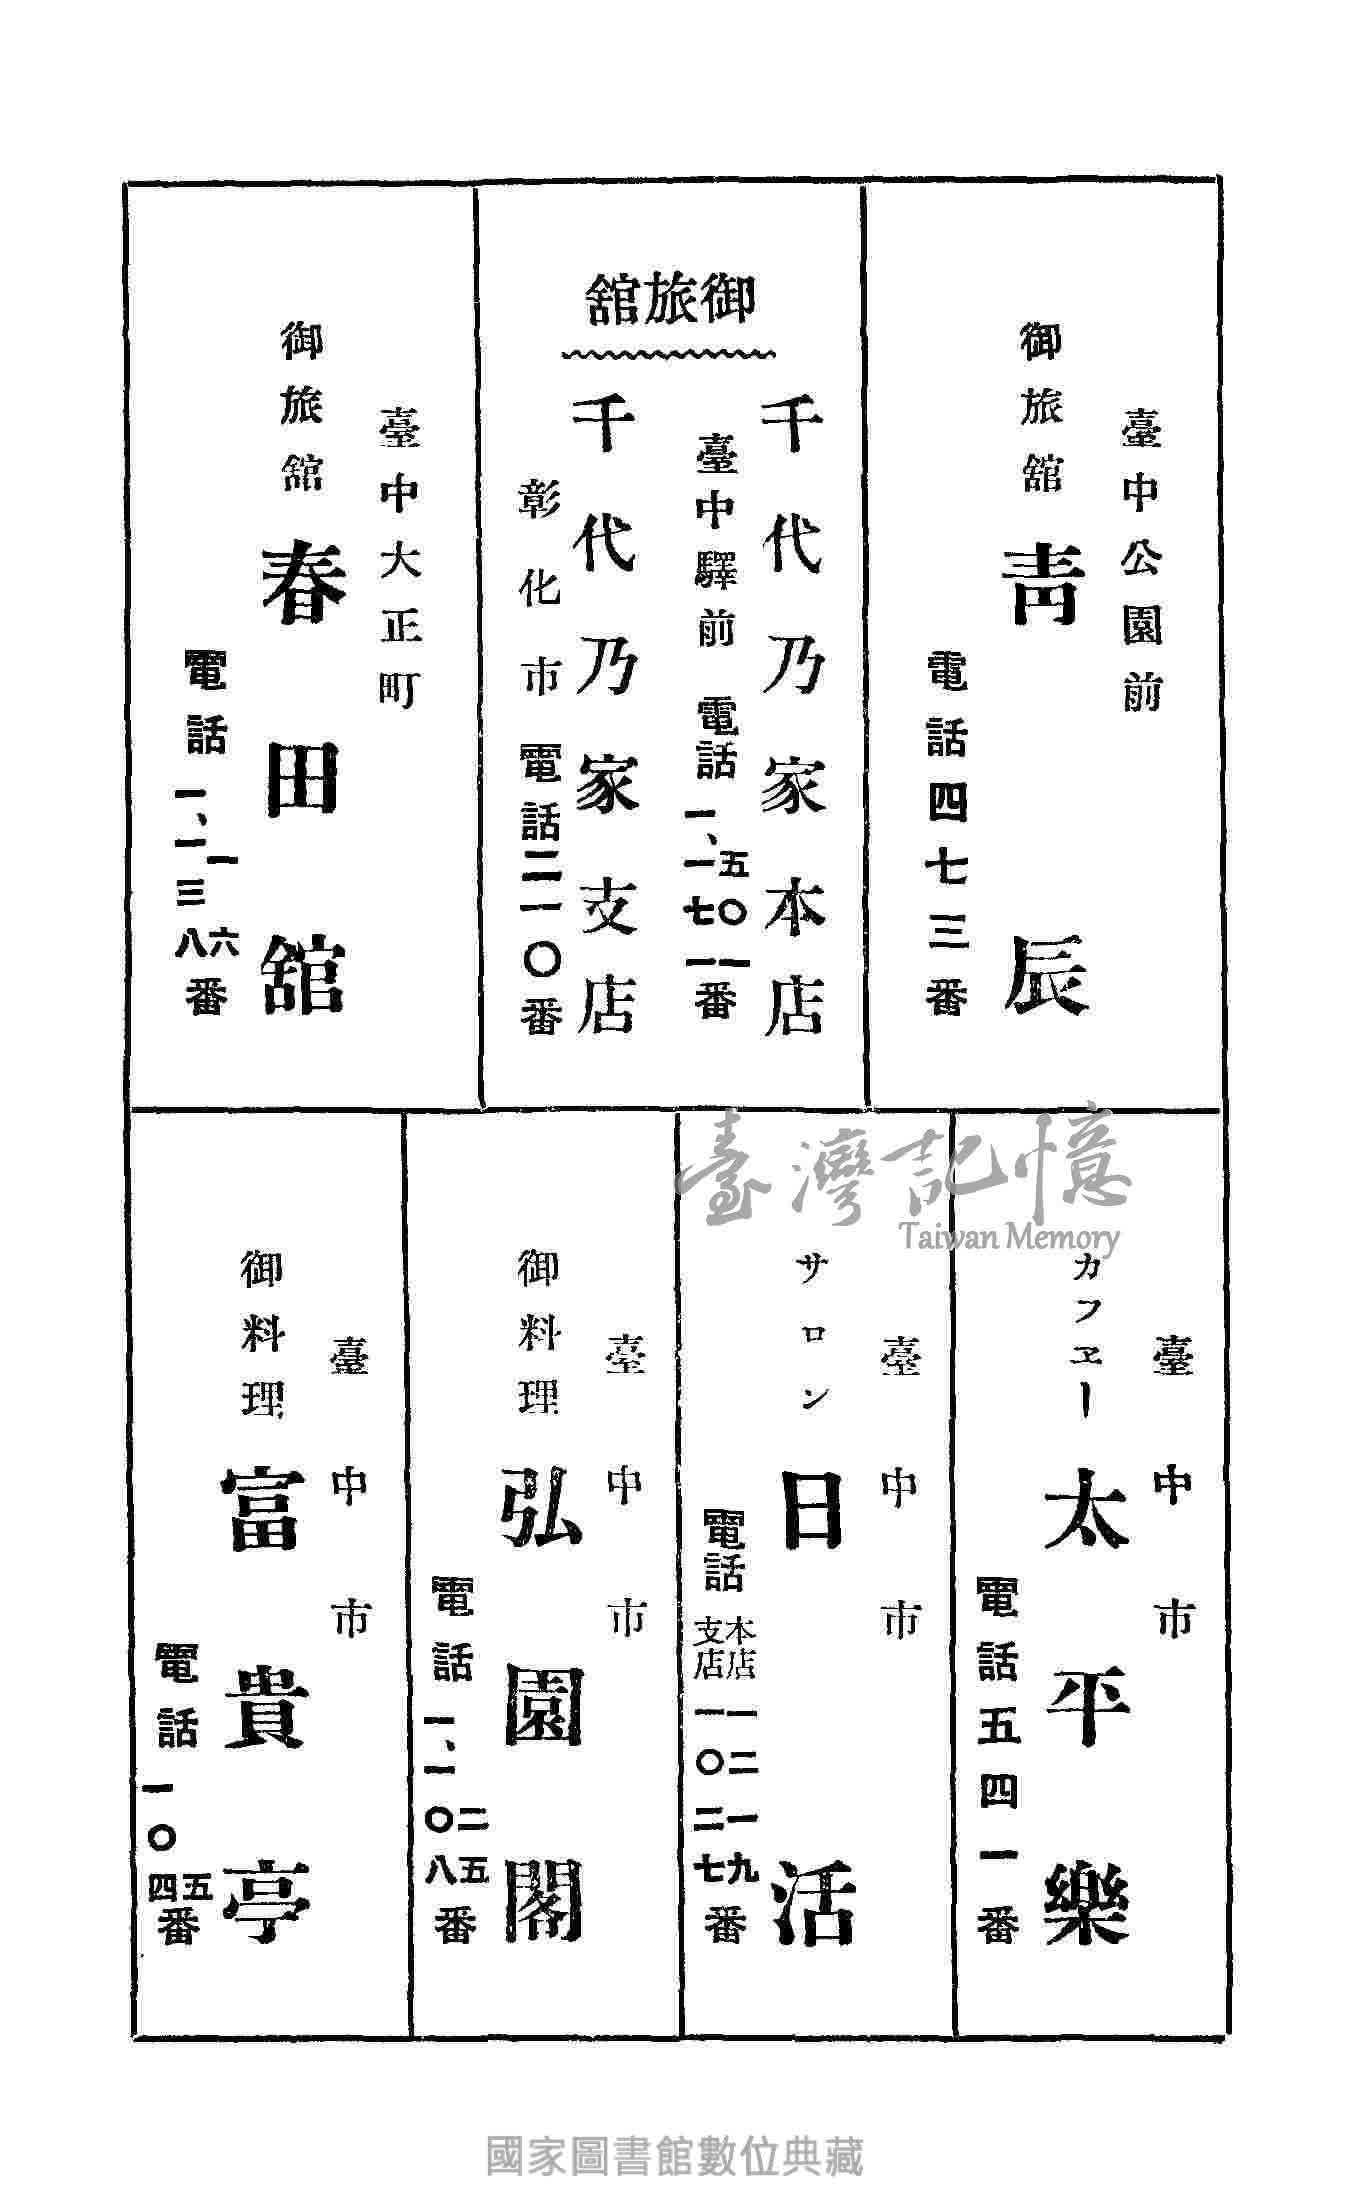 臺中公園前
御旅舘 靑辰
電話四七三番
御旅舘
千代乃家本店
臺中驛前 電話 五〇一 一、一七一番
千代乃家支店
彰化市 電話二一〇番
臺中大正町
御旅舘 春田舘
電話 一六 一、一三八番
臺中市
カフヱー 太平樂
電話五四一番
臺中市
サロン 日活
電話 本店一二一九 支店一〇二七番
臺中市
御料理 弘園閣
電話 二五 一、一〇八番
臺中市
御料理 富貴亭
電話 五 一〇四番
臺灣記憶
Taiwan Memory
國家圖書館數位典藏